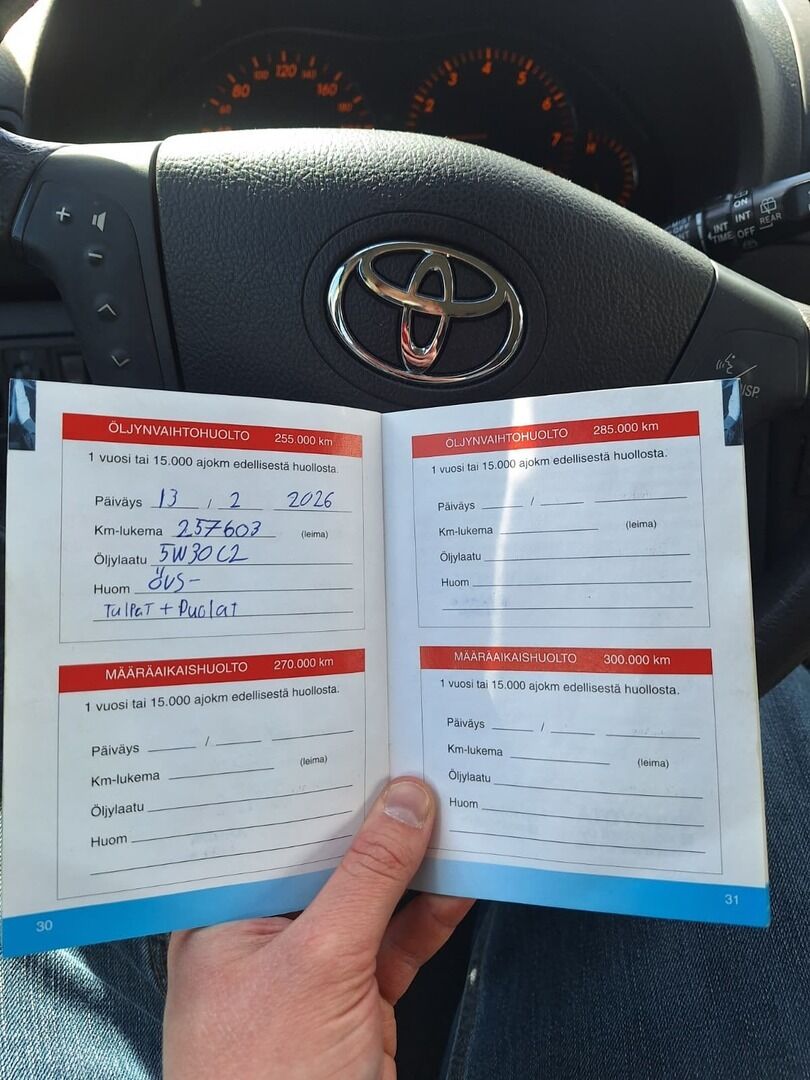 80 100 120 140 160 180
60
2 3 4 5 6 7
H
MIST
OFF
INT
INT
TIME
ON
INT
OFF
REAR
DISP
ÖLJYNVAIHTOHUOLTO 255.000 km
1 vuosi tai 15.000 ajokm edellisestä huollosta.
Päiväys 13 / 2 2026
Km-lukema 257603 (leima)
Öljylaatu 5W30 C2
Huom ÖVS-
TulPaT + Puolat
MÄÄRÄAIKAISHUOLTO 270.000 km
1 vuosi tai 15.000 ajokm edellisestä huollosta.
Päiväys /
Km-lukema (leima)
Öljylaatu
Huom
30
ÖLJYNVAIHTOHUOLTO 285.000 km
1 vuosi tai 15.000 ajokm edellisestä huollosta.
Päiväys /
Km-lukema (leima)
Öljylaatu
Huom
MÄÄRÄAIKAISHUOLTO 300.000 km
1 vuosi tai 15.000 ajokm edellisestä huollosta.
Päiväys /
Km-lukema (leima)
Öljylaatu
Huom
31